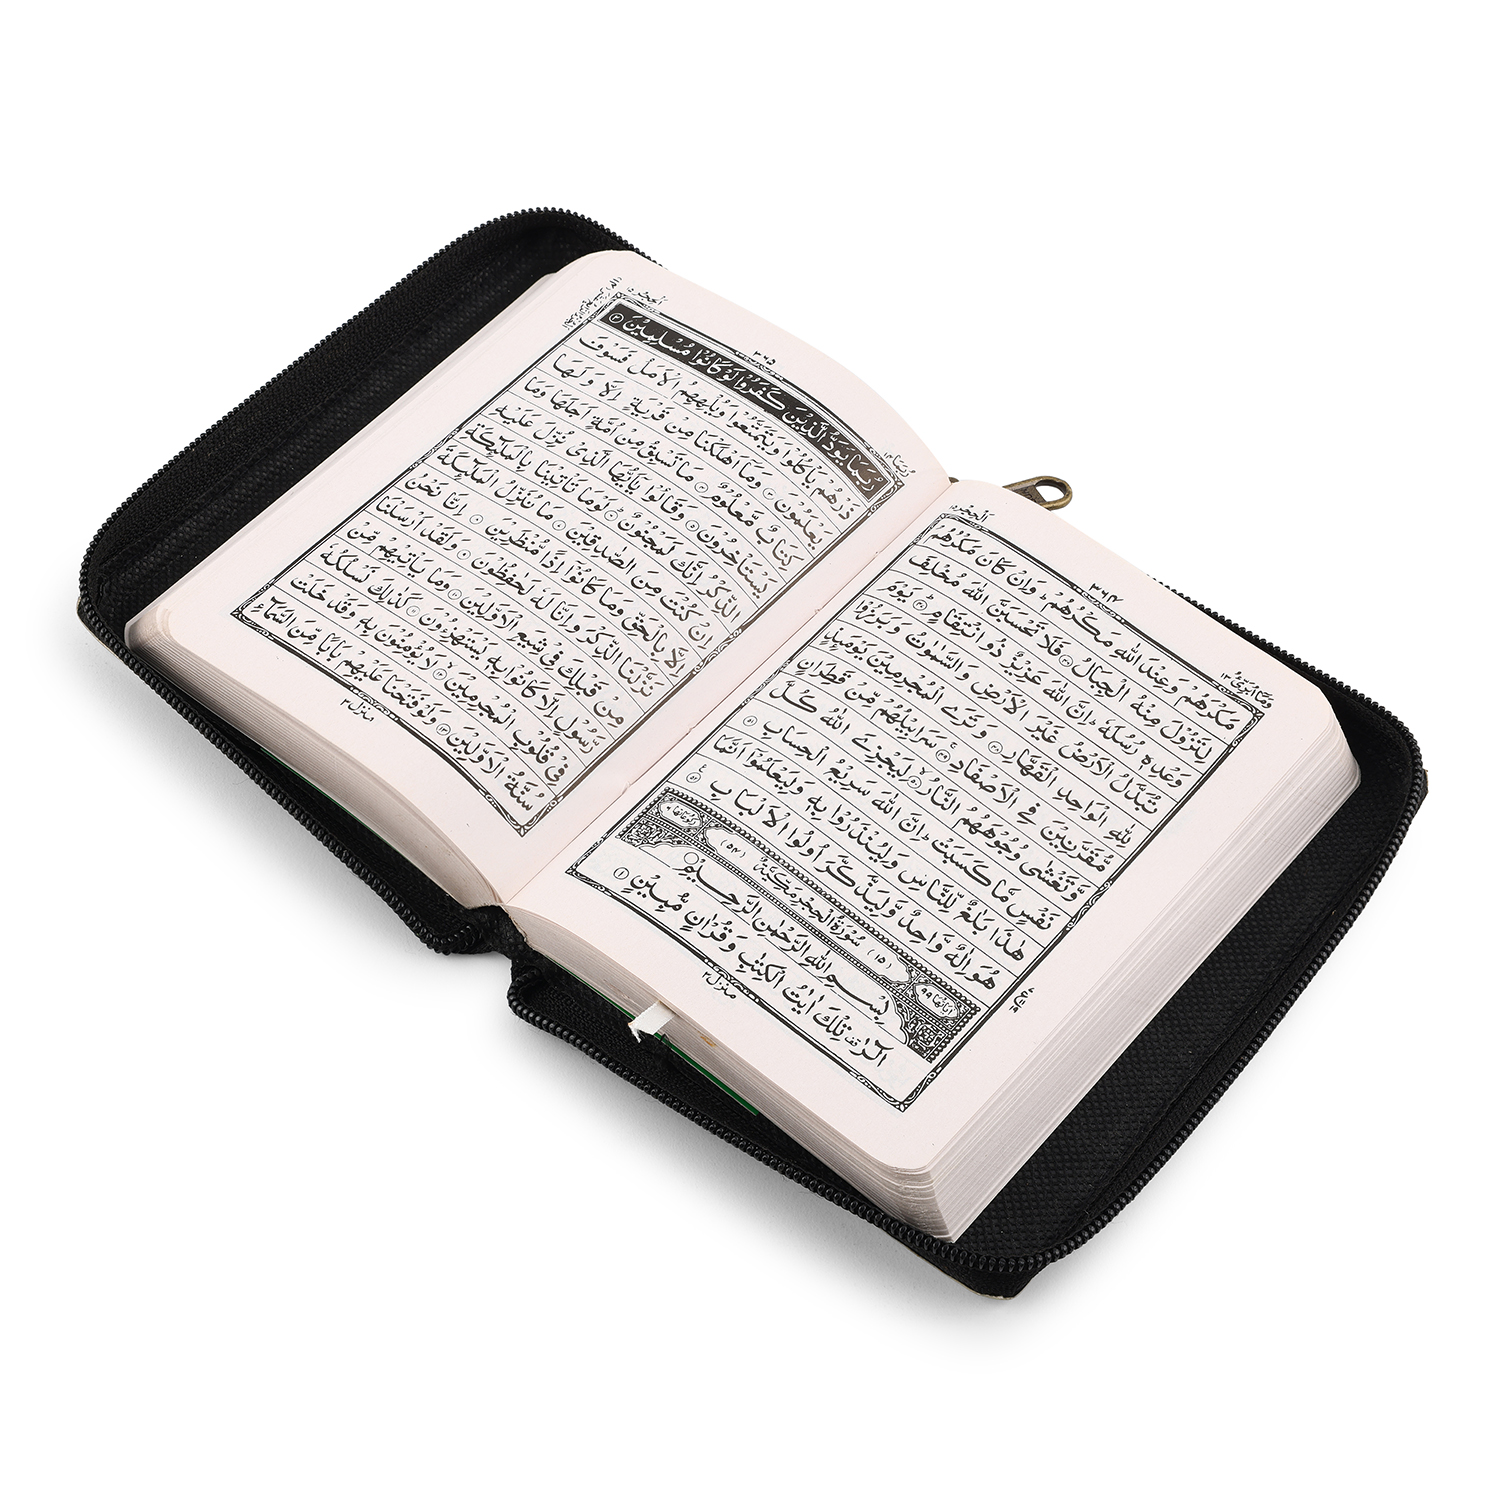 وَمَآ اُبَرِّئُ ١٣
٣٦٤
اَلْحِجْر ١٥
مَكْرَهُمْ وَعِنْدَ اللّٰهِ مَكْرُهُمْ ؕ وَاِنْ كَانَ مَكْرُهُمْ
لِتَزُوْلَ مِنْهُ الْجِبَالُ ﴿٤٦﴾ فَلَا تَحْسَبَنَّ اللّٰهَ مُخْلِفَ
وَعْدِهٖ رُسُلَهٗ ؕ اِنَّ اللّٰهَ عَزِيْزٌ ذُو انْتِقَامٍ ﴿٤٧﴾ يَوْمَ
تُبَدَّلُ الْاَرْضُ غَيْرَ الْاَرْضِ وَالسَّمٰوٰتُ وَبَرَزُوْا
لِلّٰهِ الْوَاحِدِ الْقَهَّارِ ﴿٤٨﴾ وَتَرَى الْمُجْرِمِيْنَ يَوْمَئِذٍ
مُّقَرَّنِيْنَ فِى الْاَصْفَادِ ﴿٤٩﴾ سَرَابِيْلُهُمْ مِّنْ قَطِرَانٍ
وَّتَغْشٰى وُجُوْهَهُمُ النَّارُ ﴿٥٠﴾ لِيَجْزِىَ اللّٰهُ كُلَّ
نَفْسٍ مَّا كَسَبَتْ ؕ اِنَّ اللّٰهَ سَرِيْعُ الْحِسَابِ ﴿٥١﴾
هٰذَا بَلٰغٌ لِّلنَّاسِ وَلِيُنْذَرُوْا بِهٖ وَلِيَعْلَمُوْٓا اَنَّمَا
هُوَ اِلٰهٌ وَّاحِدٌ وَّلِيَذَّكَّرَ اُولُوا الْاَلْبَابِ ﴿٥٢﴾
اٰيَاتُهَا ٩٩ (١٥) سُوْرَةُ الْحِجْرِ مَكِّيَّةٌ (٥٤) رُكُوْعَاتُهَا ٦
بِسْمِ اللّٰهِ الرَّحْمٰنِ الرَّحِيْمِ
الٓرٰ ۫ تِلْكَ اٰيٰتُ الْكِتٰبِ وَقُرْاٰنٍ مُّبِيْنٍ ﴿١﴾
منزل ٣
رُبَمَا ١٤
٣٦٥
اَلْحِجْر ١٥
رُبَمَا يَوَدُّ الَّذِيْنَ كَفَرُوْا لَوْ كَانُوْا مُسْلِمِيْنَ ﴿٢﴾
ذَرْهُمْ يَاْكُلُوْا وَيَتَمَتَّعُوْا وَيُلْهِهِمُ الْاَمَلُ فَسَوْفَ
يَعْلَمُوْنَ ﴿٣﴾ وَمَآ اَهْلَكْنَا مِنْ قَرْيَةٍ اِلَّا وَلَهَا
كِتَابٌ مَّعْلُوْمٌ ﴿٤﴾ مَا تَسْبِقُ مِنْ اُمَّةٍ اَجَلَهَا وَمَا
يَسْتَاْخِرُوْنَ ﴿٥﴾ وَقَالُوْا يٰٓاَيُّهَا الَّذِىْ نُزِّلَ عَلَيْهِ
الذِّكْرُ اِنَّكَ لَمَجْنُوْنٌ ﴿٦﴾ لَوْمَا تَاْتِيْنَا بِالْمَلٰٓئِكَةِ
اِنْ كُنْتَ مِنَ الصّٰدِقِيْنَ ﴿٧﴾ مَا نُنَزِّلُ الْمَلٰٓئِكَةَ
اِلَّا بِالْحَقِّ وَمَا كَانُوْٓا اِذًا مُّنْظَرِيْنَ ﴿٨﴾ اِنَّا نَحْنُ
نَزَّلْنَا الذِّكْرَ وَاِنَّا لَهٗ لَحٰفِظُوْنَ ﴿٩﴾ وَلَقَدْ اَرْسَلْنَا
مِنْ قَبْلِكَ فِىْ شِيَعِ الْاَوَّلِيْنَ ﴿١٠﴾ وَمَا يَاْتِيْهِمْ مِّنْ
رَّسُوْلٍ اِلَّا كَانُوْا بِهٖ يَسْتَهْزِءُوْنَ ﴿١١﴾ كَذٰلِكَ نَسْلُكُهٗ
فِىْ قُلُوْبِ الْمُجْرِمِيْنَ ﴿١٢﴾ لَا يُؤْمِنُوْنَ بِهٖ وَقَدْ خَلَتْ
سُنَّةُ الْاَوَّلِيْنَ ﴿١٣﴾ وَلَوْ فَتَحْنَا عَلَيْهِمْ بَابًا مِّنَ السَّمَآءِ
منزل ٣